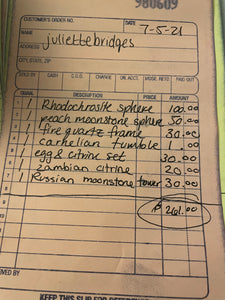 980609
CUSTOMER'S ORDER NO.
DATE 7-5-21
NAME juliettebridges
ADDRESS
CITY, STATE, ZIP
SOLD BY CASH C.O.D. CHARGE ON ACCT. MDSE. RETD. PAID OUT
QUAN. DESCRIPTION PRICE AMOUNT
1 / Rhodochrosite sphere 100.00
2 / peach moonstone sphere 50.00
3 / fire quartz frame 30.00
4 / carnelian tumble 1.00
5 / egg & citrine set 30.00
6 / zambian citrine 20.00
7 1 Russian moonstone tower 30.00
8
9 $ 261.00
10
11
12
KEEP THIS SLIP FOR